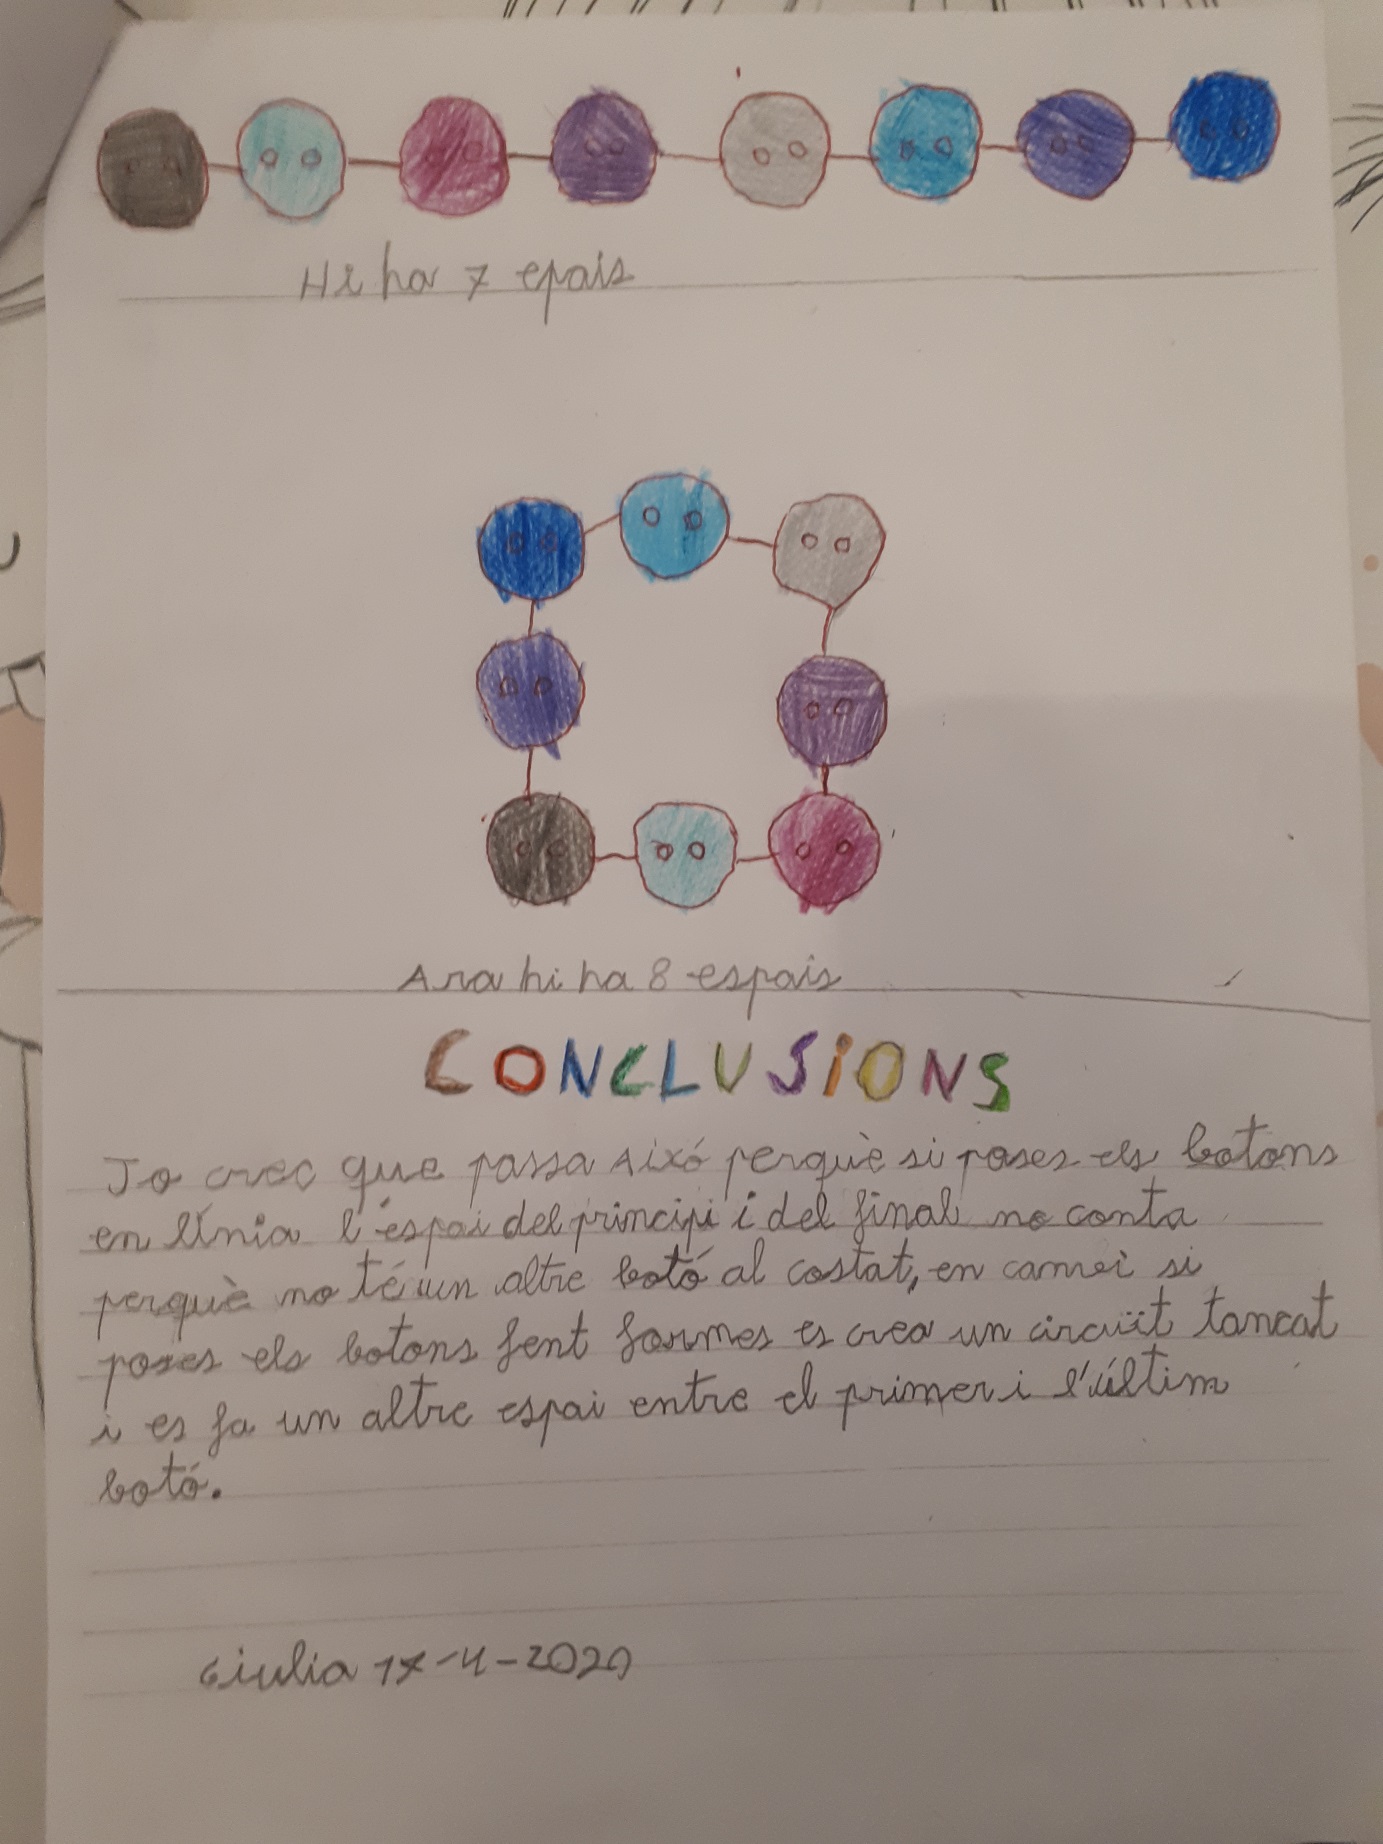 Hi ha 7 epais
Ara hi ha 8 espais
CONCLUSIONS
Jo crec que passa Aixó perquè si poses els botons
en línia l'espai del principi i del final no conta
perquè no té un altre botó al costat, en canvi si
poses els botons fent formes es crea un circuït tancat
i es fa un altre espai entre el primer i l'últim
botó.
Giulia 17-4-2020